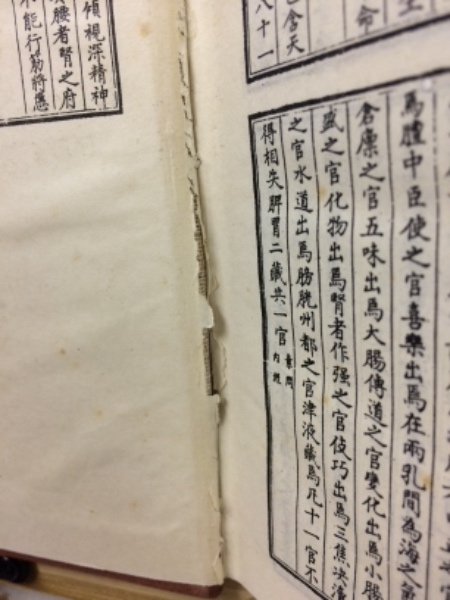 焉膻中臣使之官喜樂出焉在兩乳間為海之氣
倉廩之官五味出焉大腸傳道之官變化出焉小腸
盛之官化物出焉腎者作强之官伎巧出焉三焦決瀆
之官水道出焉膀胱州都之官津液藏焉凡十一官不
得相失脾胃二藏共一官
素問
内經
命
已含天
八十一
傾視深精神
腰者腎之府
不能行笏將應